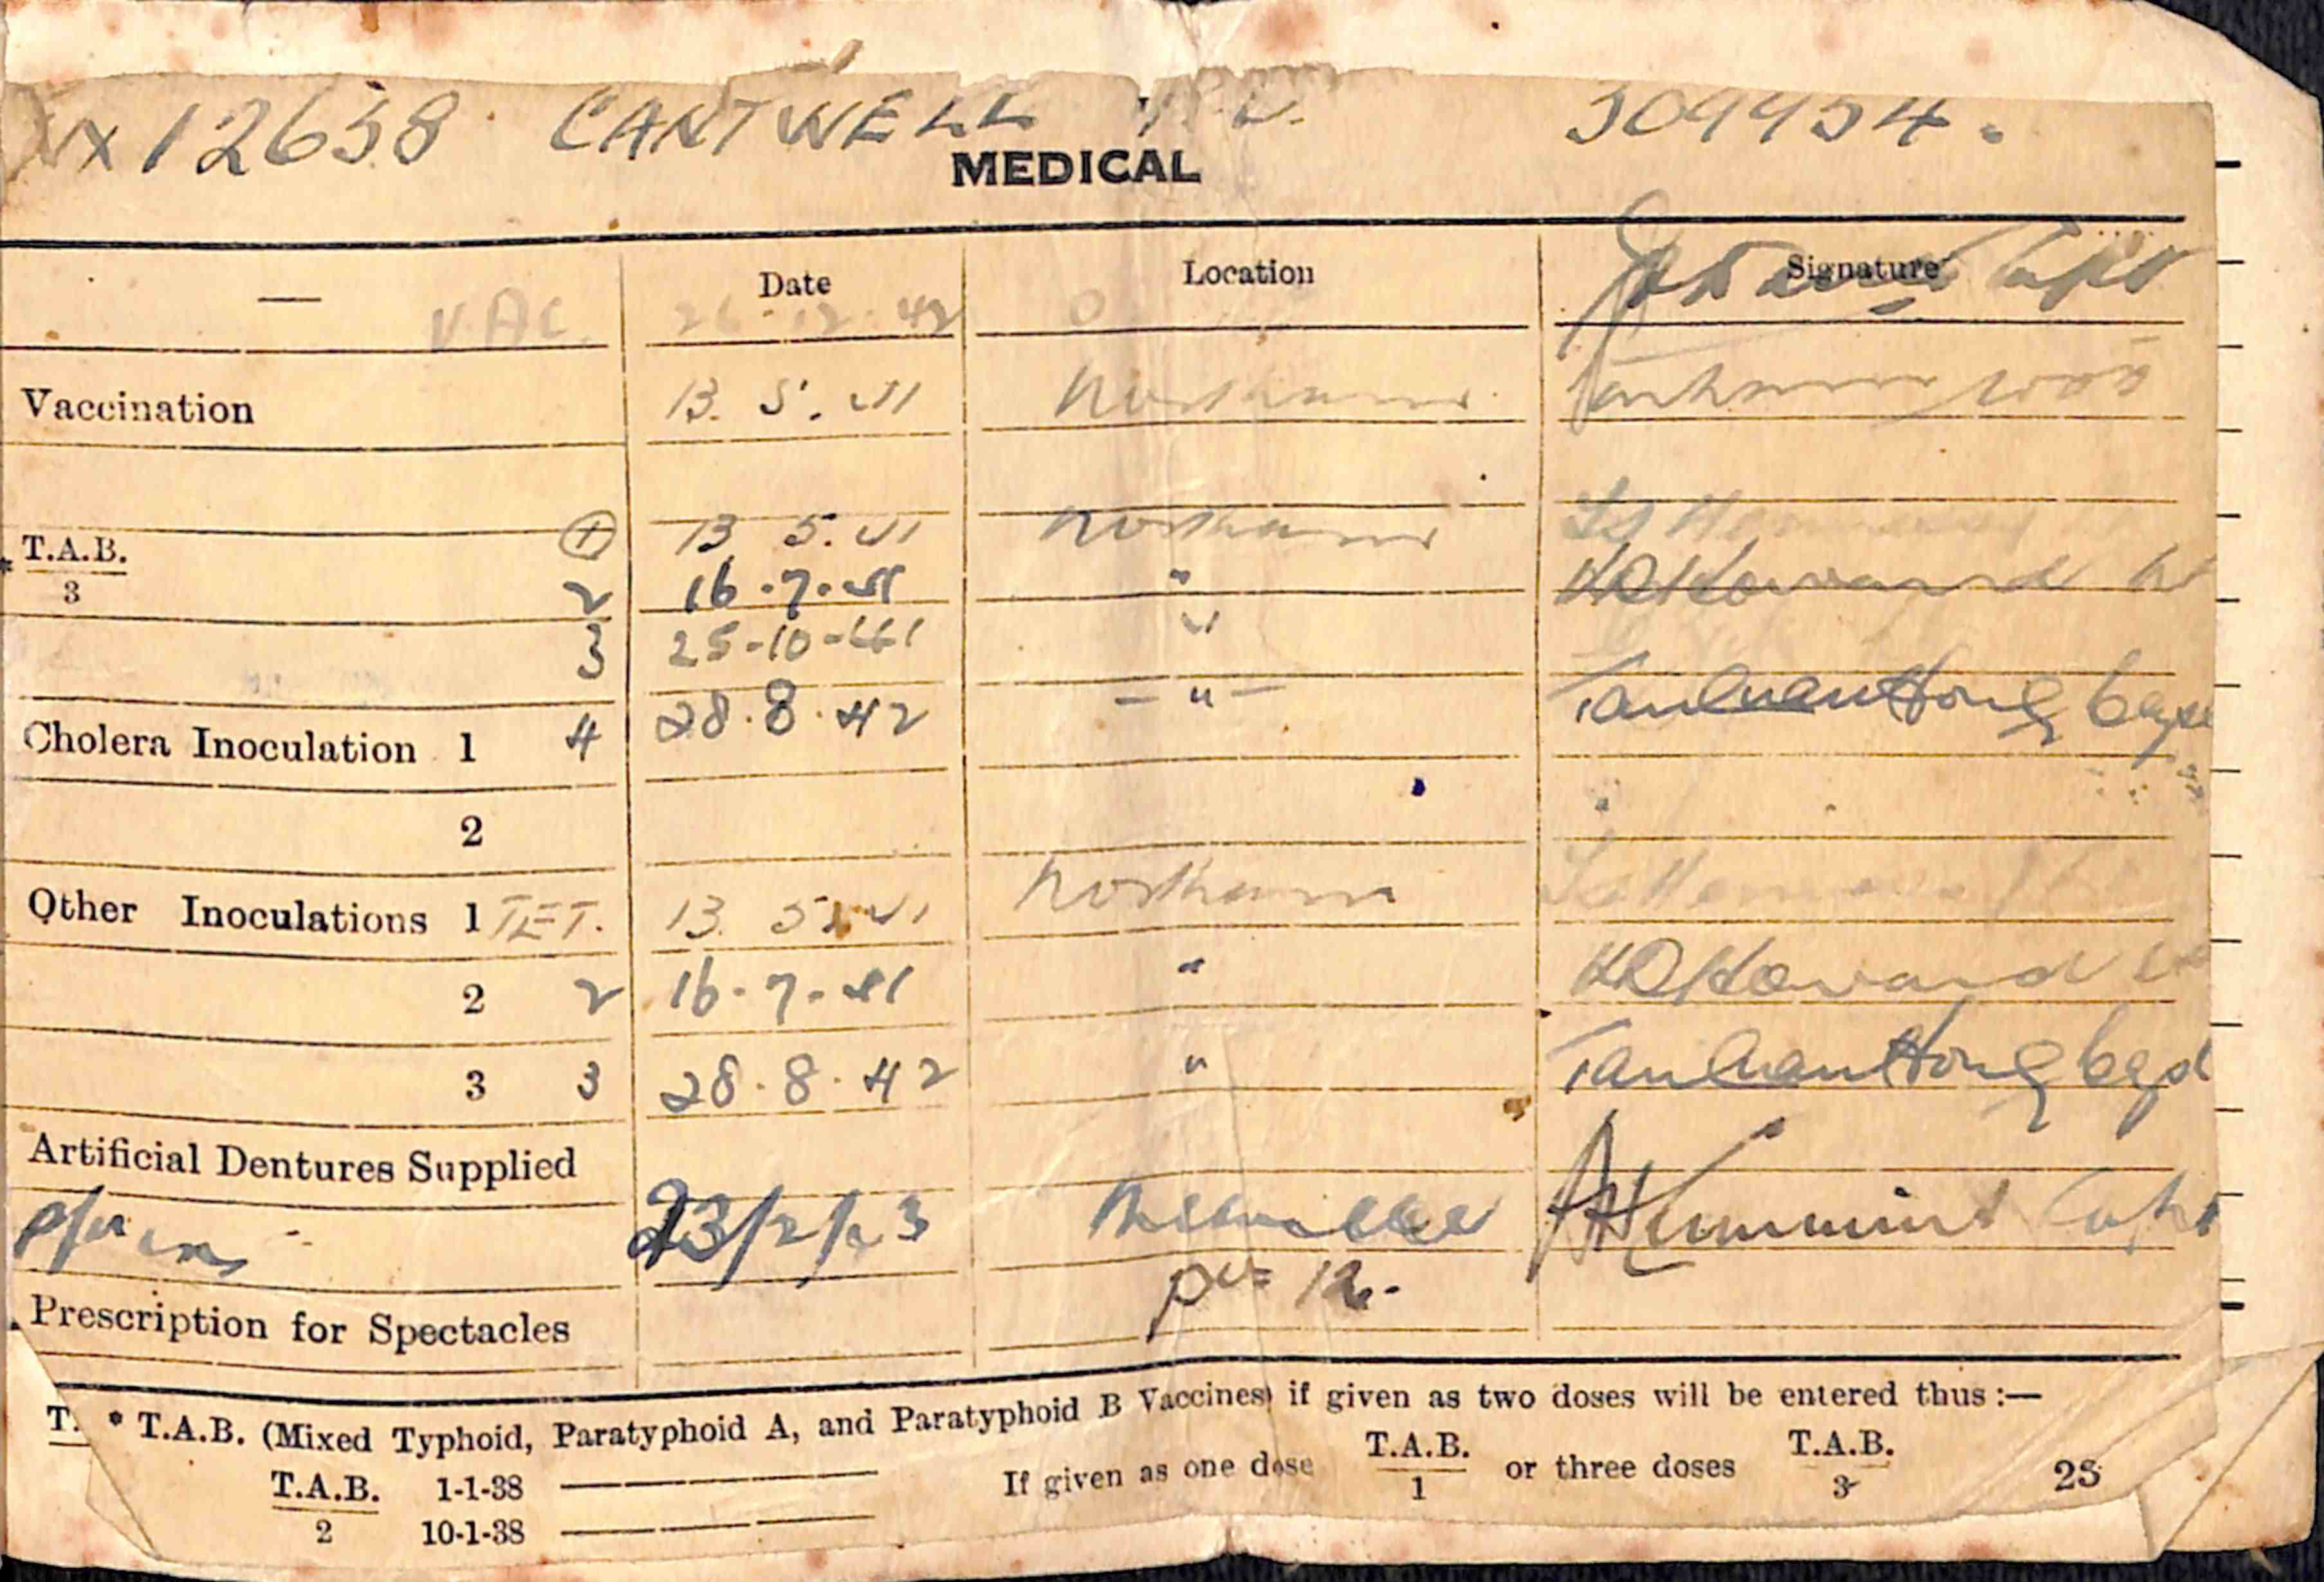 x12638 CANTWELL
MEDICAL
— Date Location Signature
VAC. 26.12.42 Capt
Vaccination 13.5.41 Northam
T.A.B. ① 13 5.41 Northam
3 2 16.7.41 " H D Howard
3 25-10-41 "
Cholera Inoculation 1 4 28.8.42 — " — Capt
2
Other Inoculations 1 TET. 13 5 41 Northam
2 2 16.7.41 " H D Howard
3 3 28.8.42 " Capt
Artificial Dentures Supplied
23/2/43 Melville Capt
Prescription for Spectacles
* T.A.B. (Mixed Typhoid, Paratyphoid A, and Paratyphoid B Vaccines) if given as two doses will be entered thus :—
T.A.B. 1-1-38 ——— If given as one dose T.A.B. or three doses T.A.B. 25
2 10-1-38 ——— 1 3